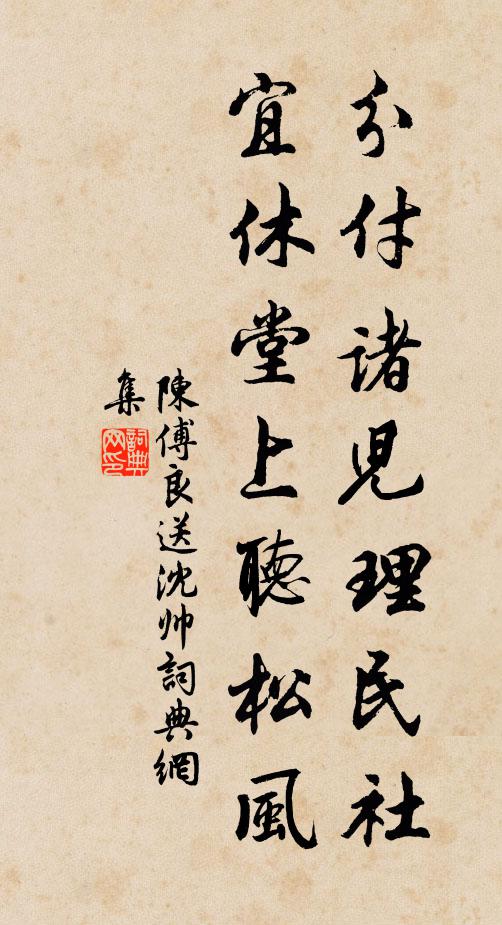 分付諸児理民社
宜休堂上聽松風
陳傅良送沈帅詞典網
集
詞典
网印